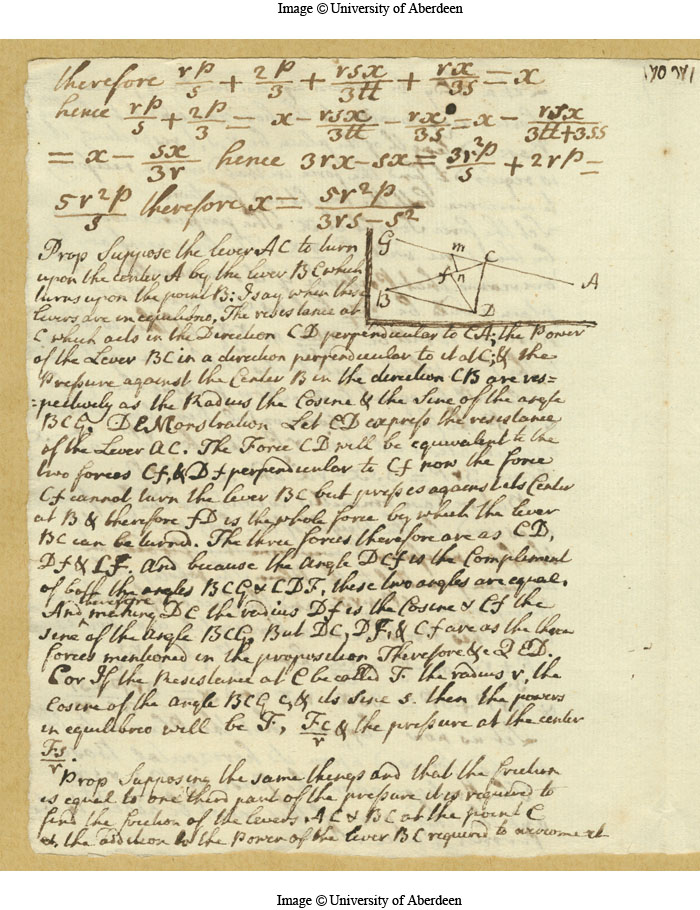 Image © University of Aberdeen
therefore rp/s + 2p/3 + rsx/3tt + rx/3s = x
hence rp/s + 2p/3 = x - rsx/3tt - rx/3s = x - rsx/3tt+3ss
= x - sx/3r hence 3rx - sx = 3r²p/s + 2rp =
5r²p/s therefore x = 5r²p/3rs - s²
Prop Suppose the lever AC to turn
upon the center A by the lever BC which
turns upon the point B: I say when these
levers are in equilibrio, The resistance at
C which acts in the Direction CD perpendicular to CA; the Power
of the Lever BC in a direction perpendecular to it at C; & the
Pressure against the Center B in the direction CB are res=
=pectively as the Radius the Cosine & the Sine of the angle
BCG. DEMonstration Let CD express the resistance
of the Lever AC. The Force CD will be equivalent to the
two forces Cf, & Df perpendicular to Cf now the force
Cf cannot turn the lever BC but presses against its Center
at B & therefore fD is the whole force by which the lever
BC can be turnd. The three forces therefore are as CD,
Df & Cf. And because the angle DCf is the Complement
of both the angles BCG & CDF, these two angles are equal.
And therefore making DC the radius Df is the Cosine & Cf the
sine of the angle BCG, But DC, DF, & Cf are as the three
forces mentioned in the proposition Therefore &c QED.
Cor If the Resistance at C be called F. the radius r, the
Cosine of the angle BCG c, & its sine s. then the powers
in equilibrio will be F, Fc/r & the pressure at the center
Fs/r.
Prop Supposing the same things and that the friction
is equal to one third part of the pressure it is required to
find the friction of the levers AC & BC at the point C
&, the addition to the Power of the lever BC required to overcome it
G
m
C
f
n
A
B
D
Image © University of Aberdeen